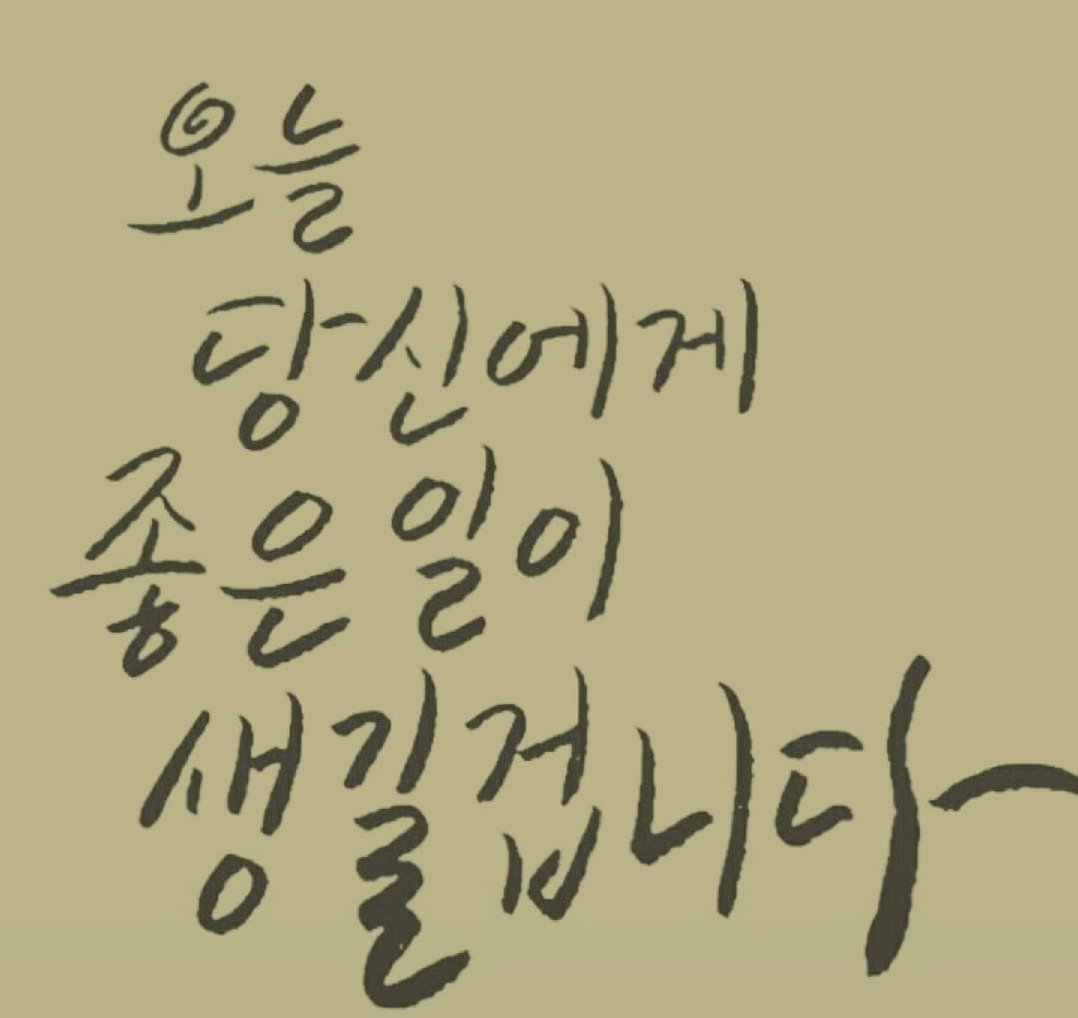 오늘
당신에게
좋은일이
생길겁니다